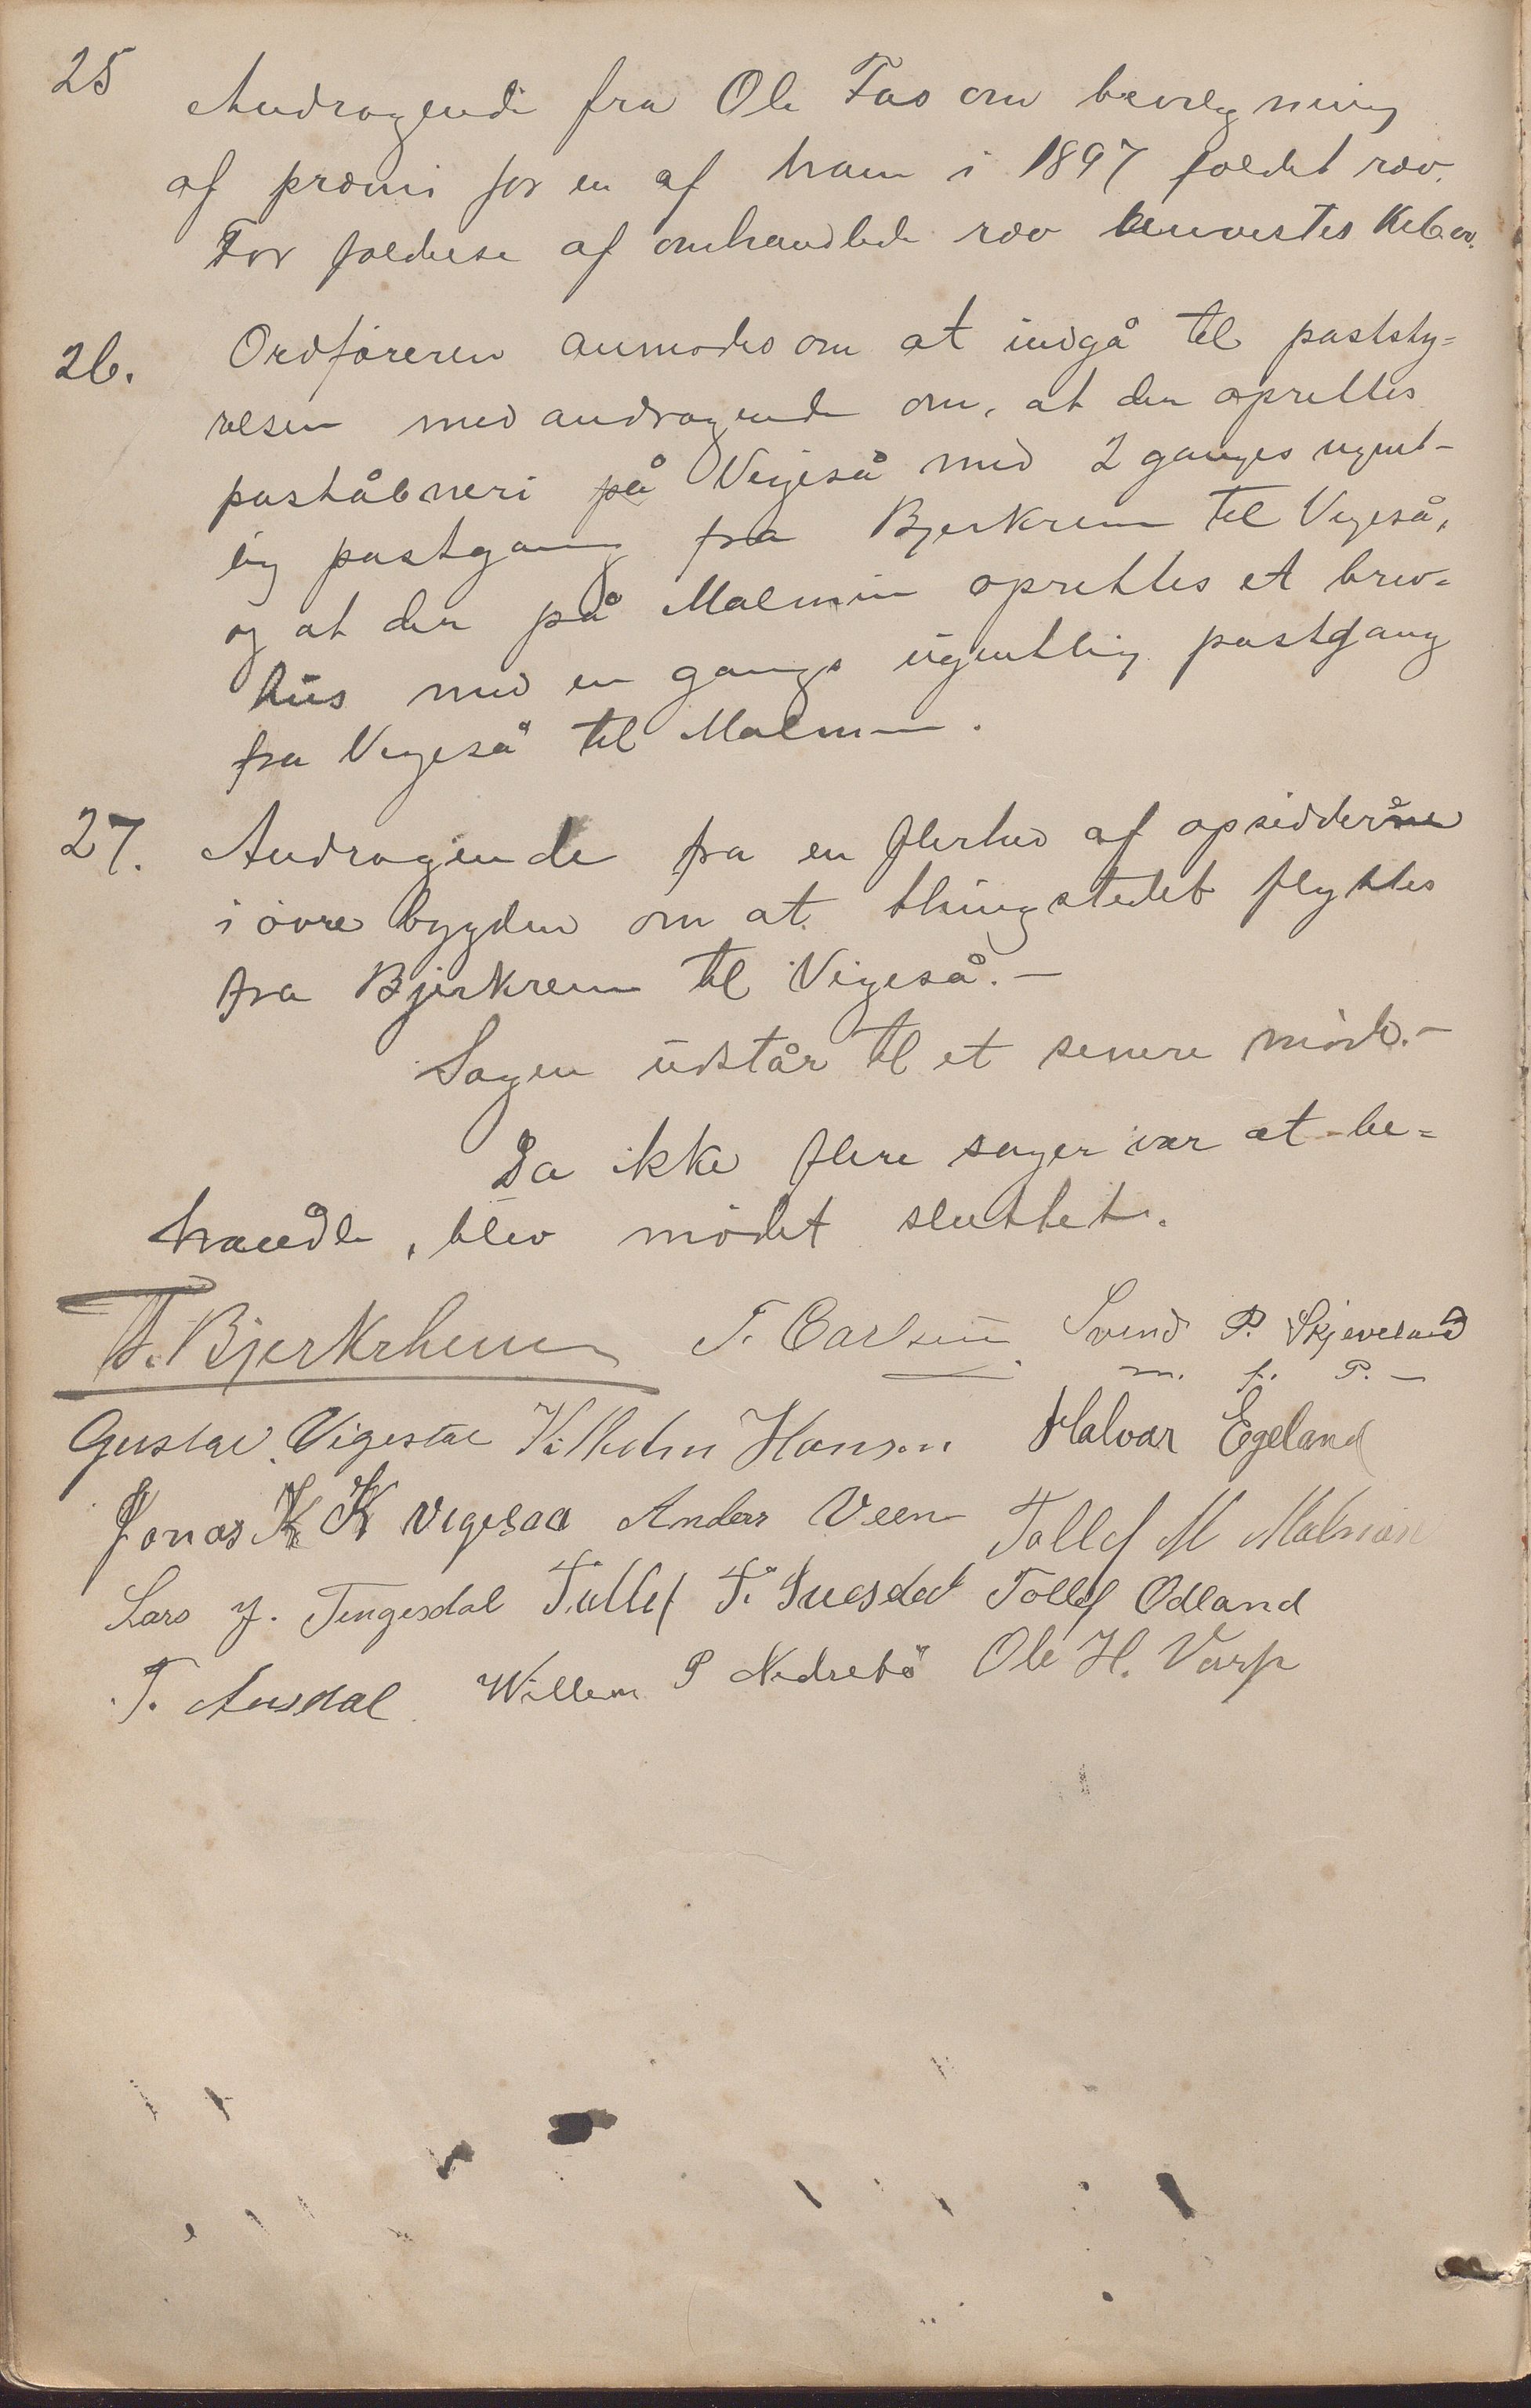 25 Andragende fra Ole Tas om bevilgning
af præmi for en af ham i 1897 fældet ræv.
For fældelse af omhandlede ræv
26. Ordføreren anmodes om at indgå til poststy=
relsen med andragende om, at der oprettes
poståbneri på Vigeså med 2 ganges ugent-
lig postgang fra Bjerkrem til Vigeså,
og at der på Malmin oprettes et brev=
hus med en gangs ugentlig postgang
fra Vigeså til Malmin.
27. Andragende fra en flerhed af opsiddere
i øvre bygden om at thingstedet flyttes
fra Bjerkrem til Vigeså. —
Sagen udstår til et senere møde. —
Da ikke flere sager var at be=
handle, blev mødet sluttet.
T. Bjerkrheim T. Carlsen Svend P. Skjeveland
m. f. P. —
Gustav Vigestad Vilhelm Hansen Halvar Egeland
Jonas K K Vigesaa Anders Veen Tollef M Malmin
Lars J. Tengesdal Tollef T. Tollef Odland
T. Ausdal Willem P Nedrebø Ole H. Varp